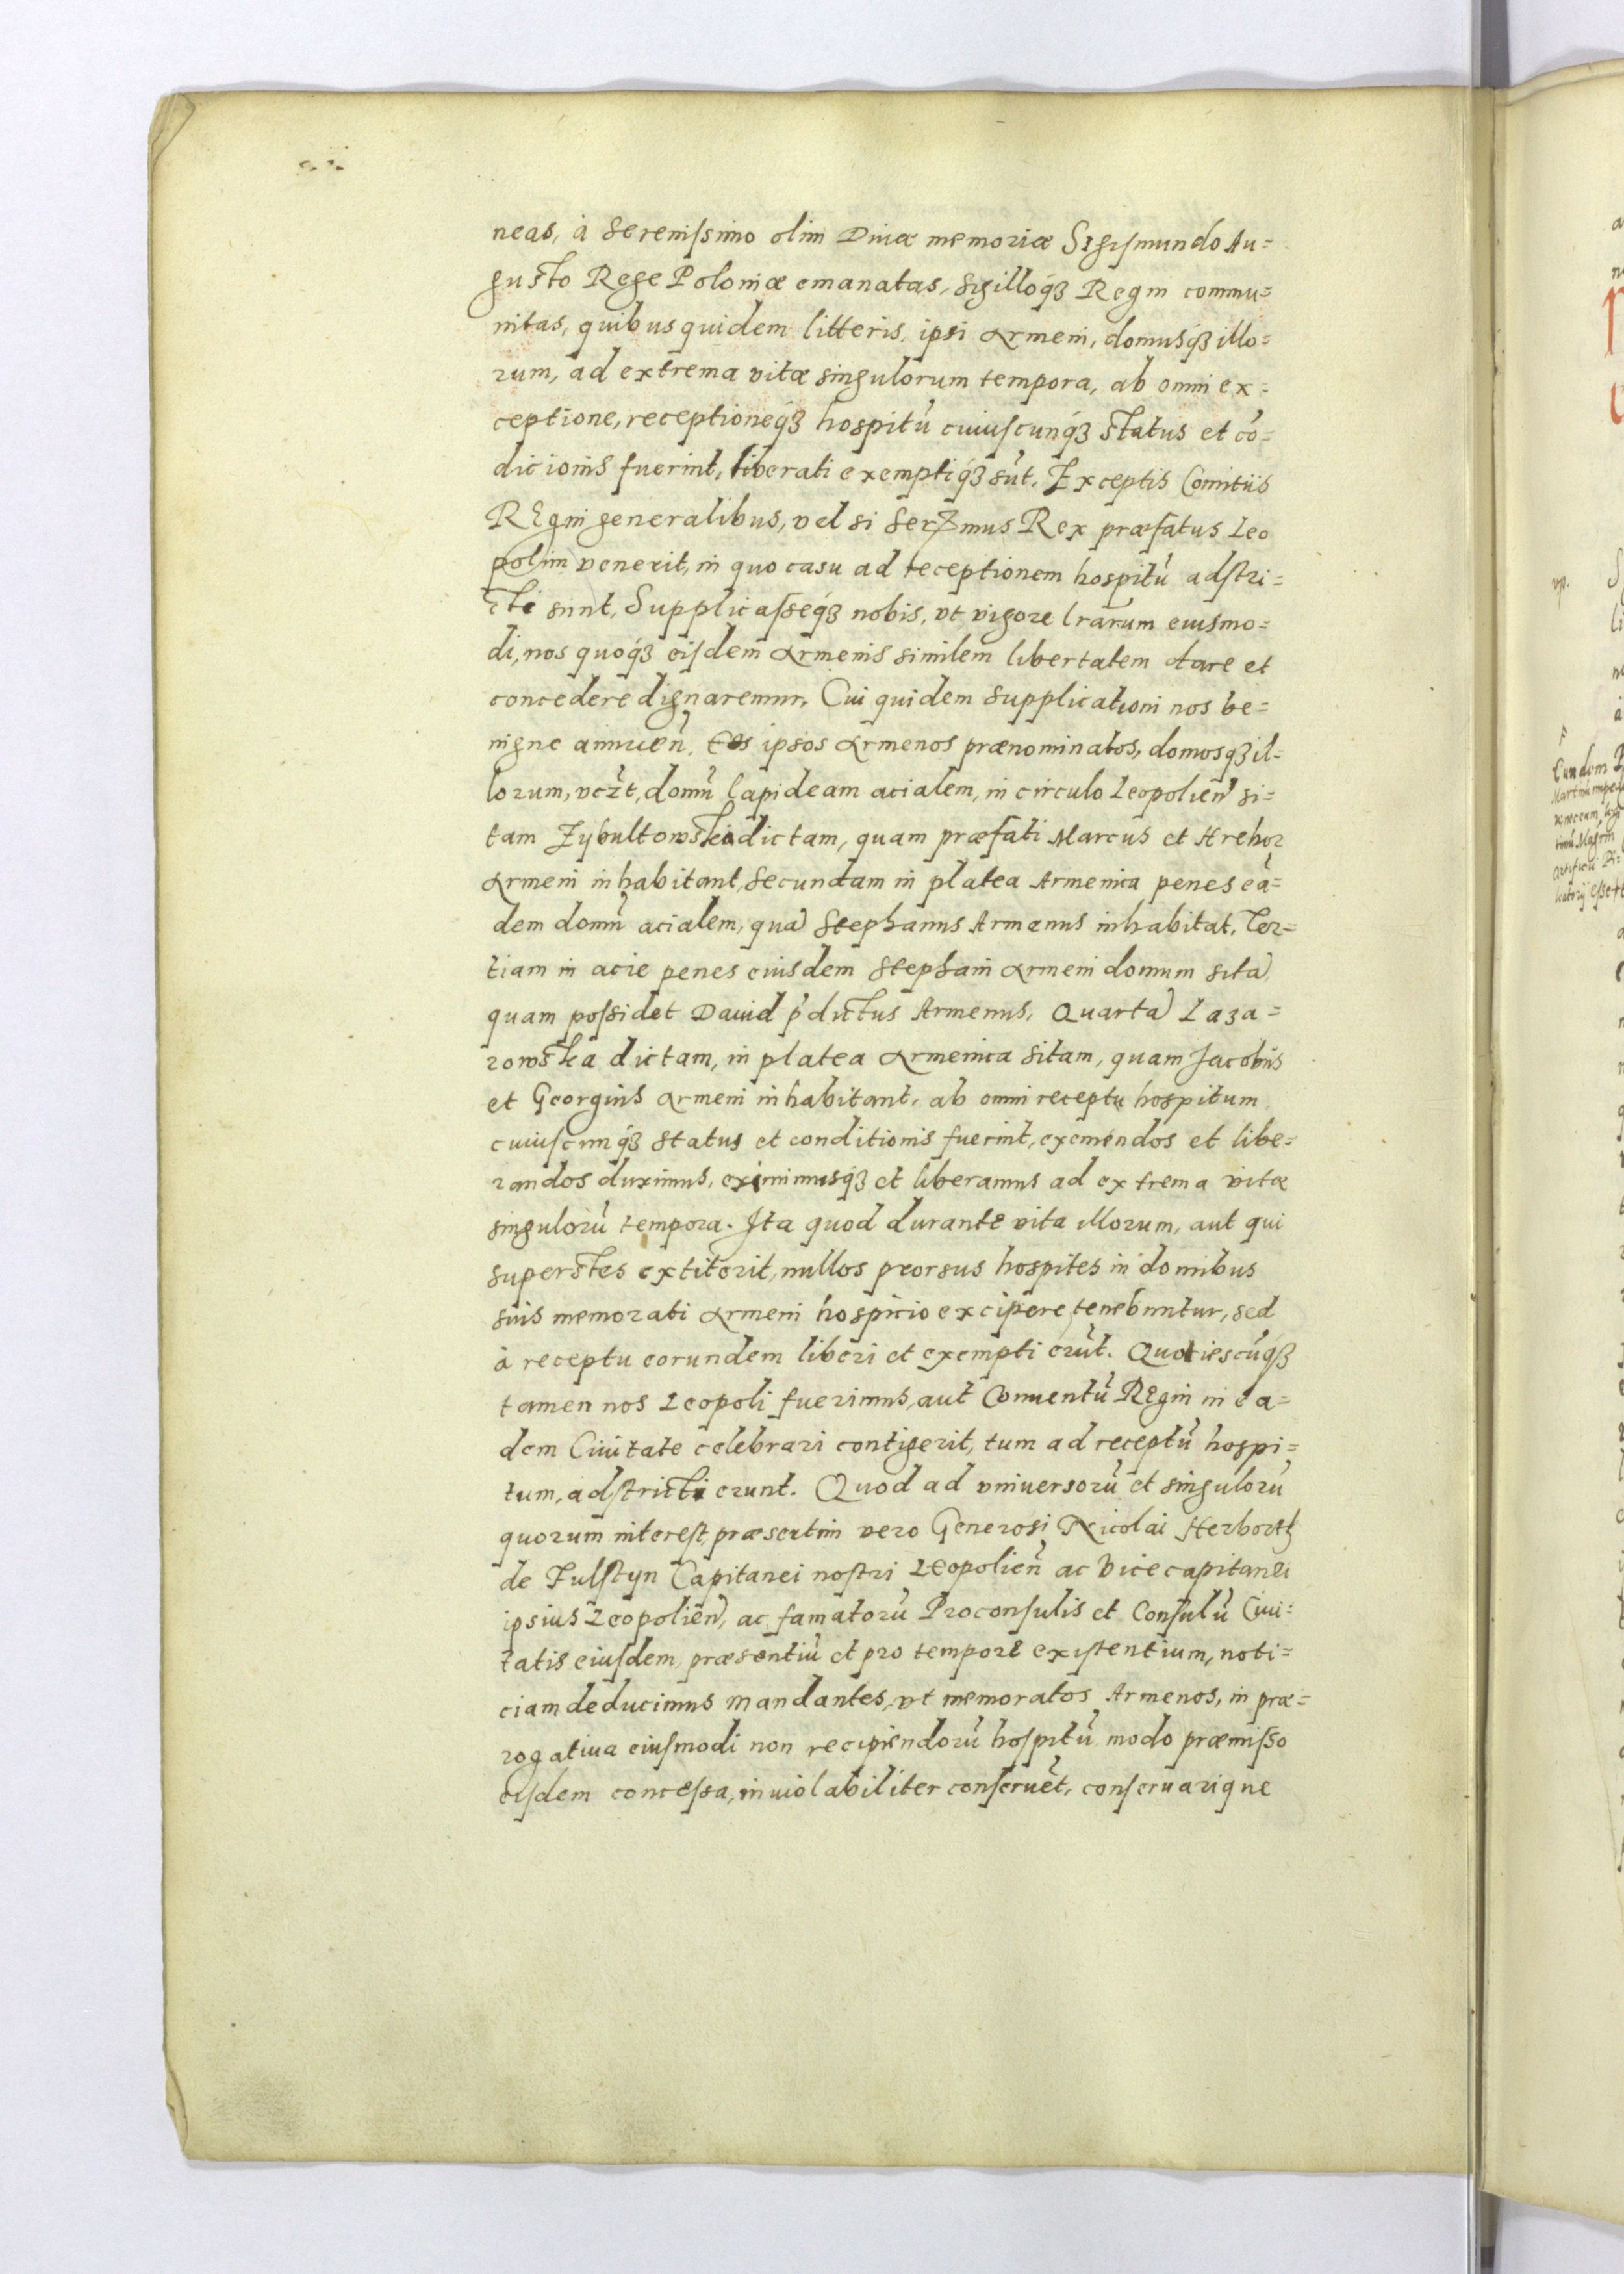 neas, à Serenissimo olim Diuæ memoriæ Sigismundo Au=
gusto Rege Poloniæ emanatas, sigilloq́ꝫ Regni commu=
nitas, quibus quidem litteris, ipsi Armeni, domusq́ꝫ illo=
rum, ad extrema vitæ singulorum tempora, ab omni ex=
ceptione, receptioneq́ꝫ hospitũ cuiuscunq́ꝫ status et cõ=
dicionis fuerint, liberati exemptiq́ꝫ sũt. Exceptis Comitiis
REgni generalibus, vel si Serᵐmus Rex præfatus Leo
polim venerit, in quo casu ad receptionem hospitũ adstri=
cti sunt, Supplicasseq́ꝫ nobis, vt vigore lrãrum eiusmo=
di, nos quoq́ꝫ eisdem Armenis similem libertatem dare et
concedere dignaremur. Cui quidem supplicationi nos be=
nigne annuen̄, Eos ipsos Armenos prænominatos, domosqꝫ il=
lorum, vcꝫt, domũ lapideam acialem, in circulo Leopolien̄ si=
tam Zybultowska dictam, quam præfati Marcus et Hrehor
Armeni inhabitant, Secundam in platea Armenica penes eã=
dem domũ acialem, quã Stephanus Armenus inhabitat. Ter=
tiam in acie penes eiusdem Stephani Armeni domum sitã,
quam possidet Dauid p̃dictus Armenus. Quartã Laza=
rowska dictam, in platea Armenica sitam, quam Jacobus
et Georgius Armeni inhabitant, ab omni receptu hospitum
cuiuscunq́ꝫ status et conditionis fuerint, eximendos et libe=
randos duximus, eximimusq́ꝫ et liberamus ad extrema vitæ
singulorũ tempora. Ita quod durante vita illorum, aut qui
superstes extiterit, nullos prorsus hospites in domibus
suis memorati Armeni hospicio excipere tenebuntur, sed
à receptu eorundem liberi et exempti erũt. Quotiescũq́ꝫ
tamen nos Leopoli fuerimus, aut Conuentũ REgni in ea=
dem Ciuitate celebrari contigerit, tum ad receptũ hospi=
tum, adstricti erunt. Quod ad vniuersorũ et singulorũ
quorum interest, præsertim vero Generosi Nicolai Herbortt
de Fulstyn Capitanei nostri Leopolien̄ ac Vicecapitanei
ipsius Leopolien̄, ac famatorũ Proconsulis et Consulũ Ciui=
tatis eiusdem, præsentiũ et pro tempore existentium, noti=
ciam deducimus Mandantes, vt memoratos Armenos, in præ=
rogatiua eiusmodi non recipiendorũ hospitũ modo præmisso
eisdem concessa, inuiolabiliter conseruẽt, conseruarique